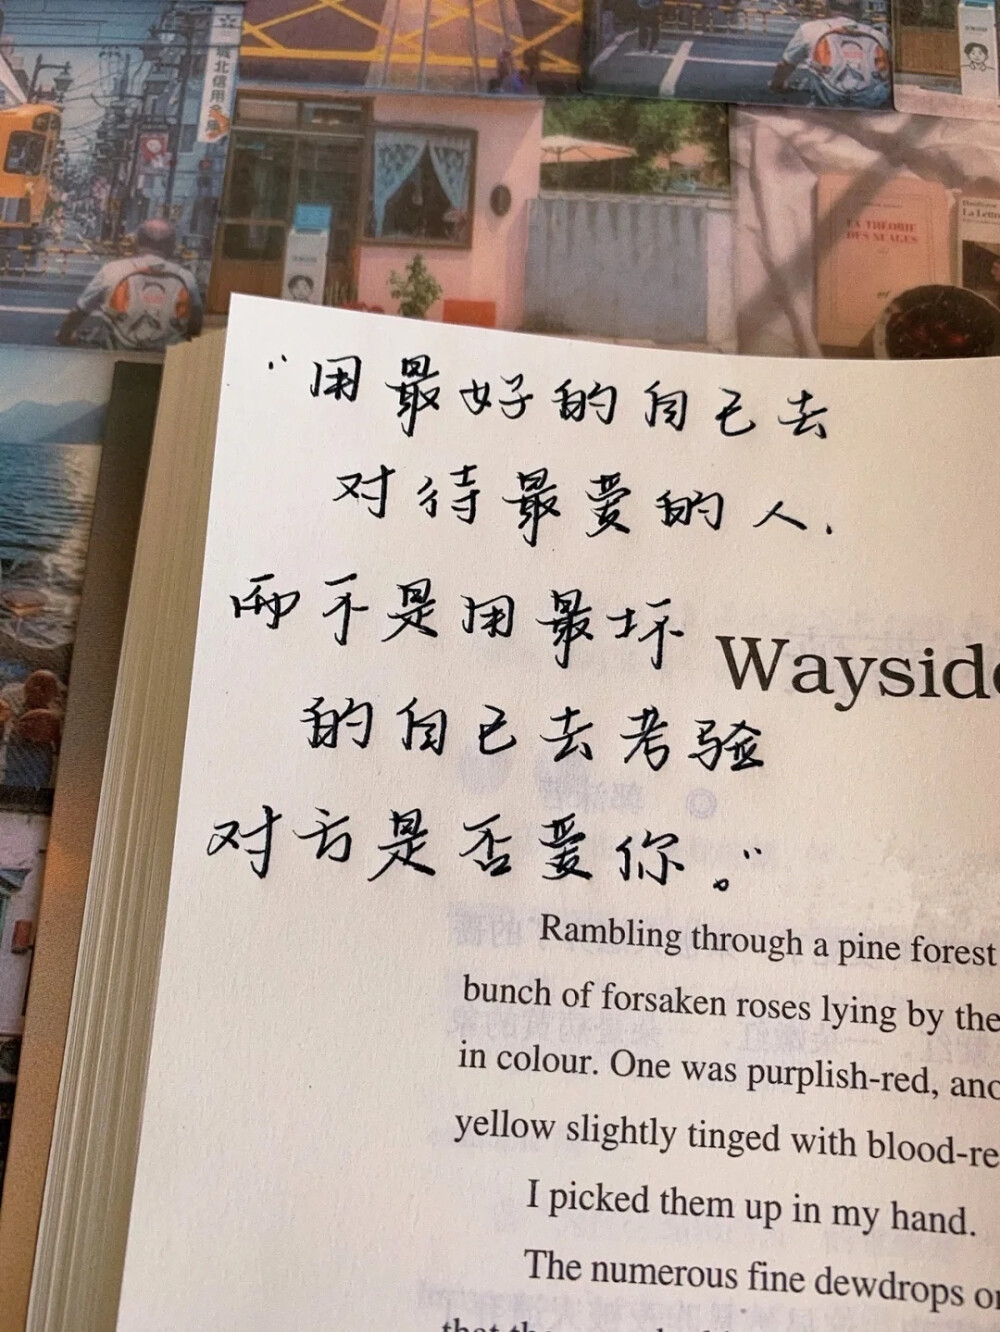 福北信用
LA THÉORIE
DES NUAGES
La Lettre
“用最好的自己去
对待最爱的人.
而不是用最坏
的自己去考验
对方是否爱你。”
Wayside
Rambling through a pine forest
bunch of forsaken roses lying by the
in colour. One was purplish-red, and
yellow slightly tinged with blood-re
I picked them up in my hand.
The numerous fine dewdrops on